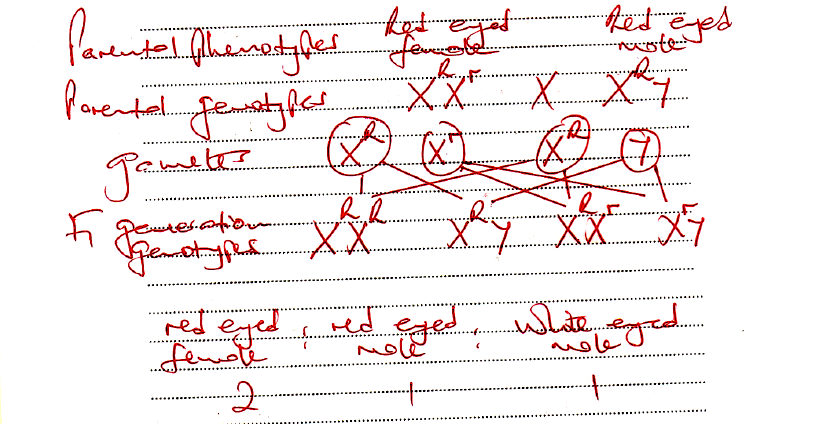 Parental Phenotypes Red eyed female Red eyed male
Parental genotypes XᴿXʳ X XᴿY
gametes Xᴿ Xʳ Xᴿ Y
F₁ generation genotypes XᴿXᴿ XᴿY XᴿXʳ XʳY
red eyed female : red eyed male : White eyed male
2 1 1